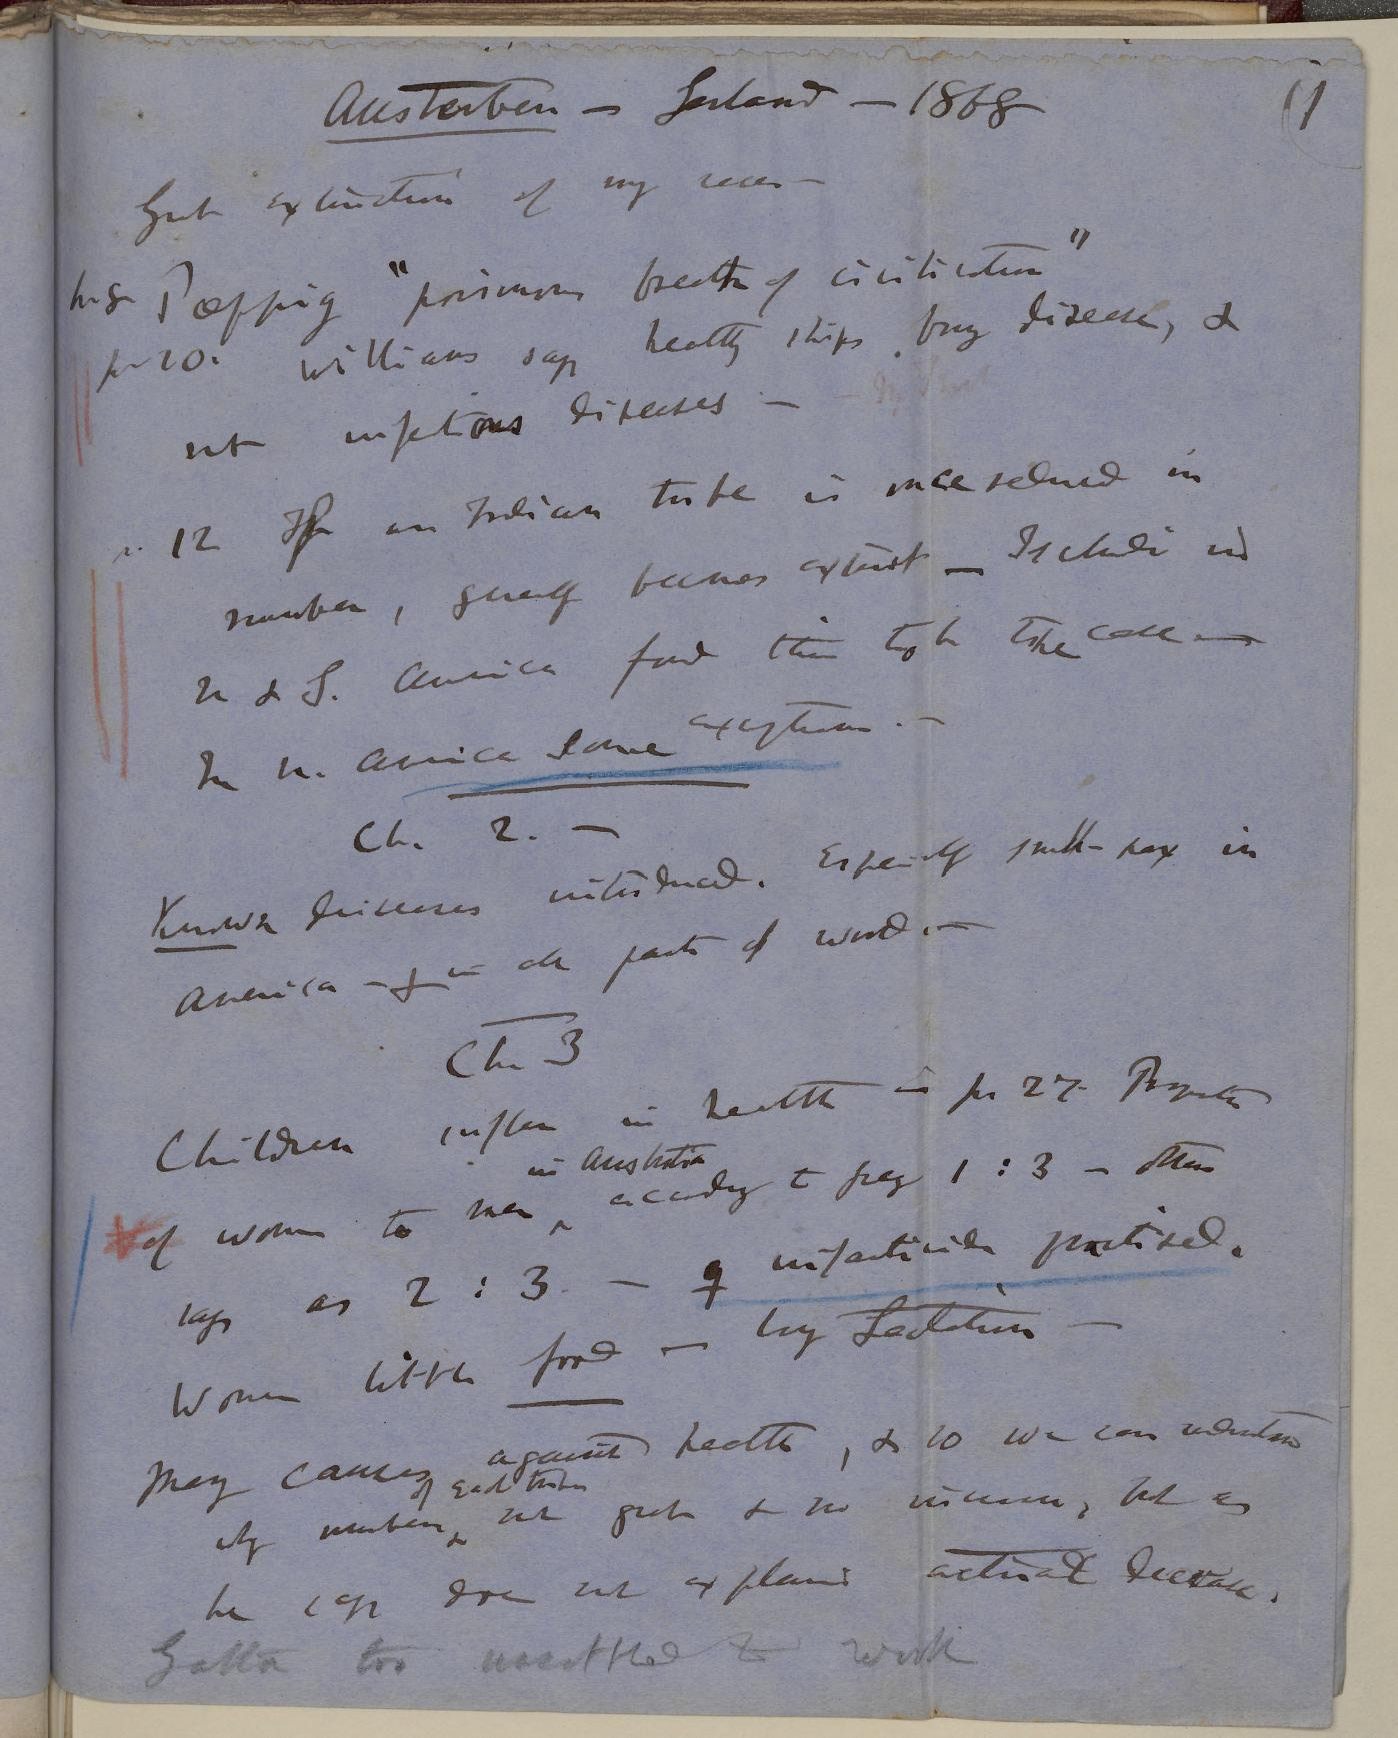 Aussterben — Gerland — 1868 (1
Great extinction of many races —
p. 8 Poeppig "poisonous breath of civilisation"
p. 10. Williams says healthy ships bring disease, &
not infectious diseases —
p. 12 If an Indian tribe is once reduced in
number, generally becomes extinct — Tschudi in
N & S. America found this to be the case —
In N. America some exceptions. —
Ch. 2. —
Known diseases introduced. Especially small-pox in
America — & in all parts of world. —
Ch. 3
Children suffer in health — p. 27. Proportion
of women to men in Australia, according to Grey 1 : 3 — others
says as 2 : 3. — ♀ infanticide practised.
Women little food — long Lactation —
Many causes against health, & so we can understand
why numbers of each tribe not great & no increase, but as
he says does not explain actual decrease.
too unsettled to work